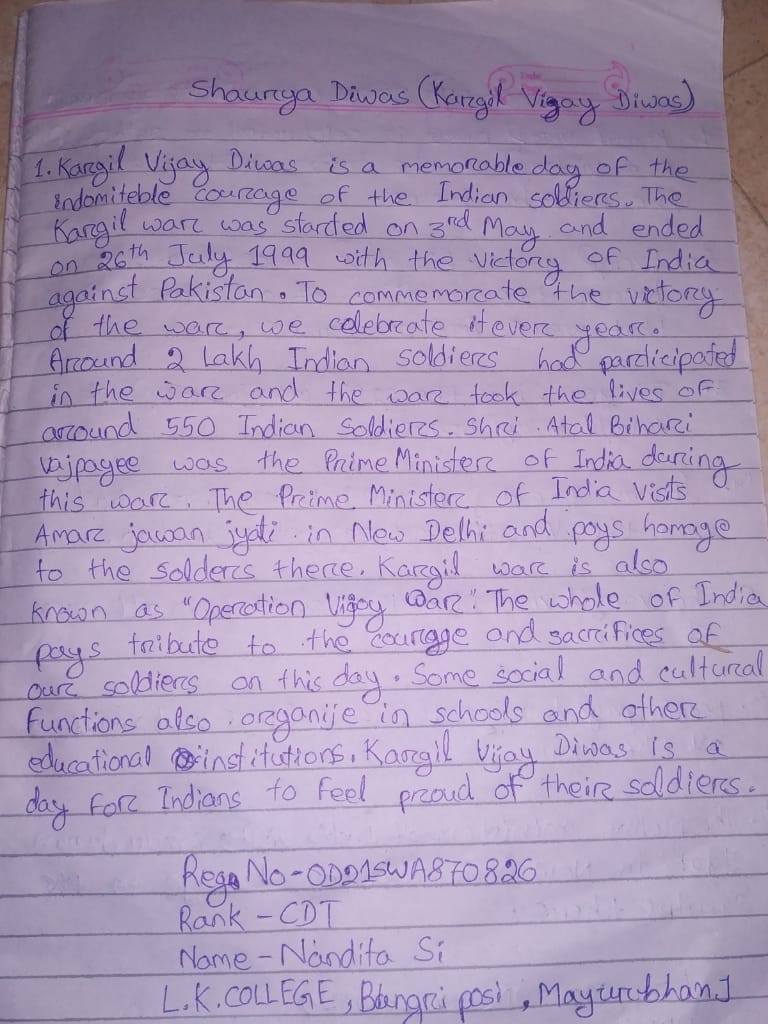 Shaurya Diwas (Kargil Vigay Diwas)
1. Kargil Vijay Diwas is a memorable day of the
indomiteble courage of the Indian soldiers. The
Kargil war was started on 3rd May and ended
on 26th July 1999 with the victory of India
against Pakistan. To commemorate the victory
of the war, we celebrate it ever year.
Around 2 Lakh Indian soldiers had participated
in the war and the war took the lives of
around 550 Indian Soldiers. Shri. Atal Bihari
Vajpayee was the Prime Minister of India during
this war. The Prime Minister of India Visits
Amar jawan jyoti in New Delhi and pays homage
to the solders there. Kargil war is also
known as "Operation Vigay War". The whole of India
pays tribute to the courage and sacrifices of
our soldiers on this day. Some social and cultural
functions also organije in schools and other
educational institutions. Kargil Vijay Diwas is a
day for Indians to feel proud of their soldiers.
Reg. No-OD21SWA870826
Rank - CDT
Name - Nandita Si
L.K. COLLEGE, Bangri posi, Mayurbhanj